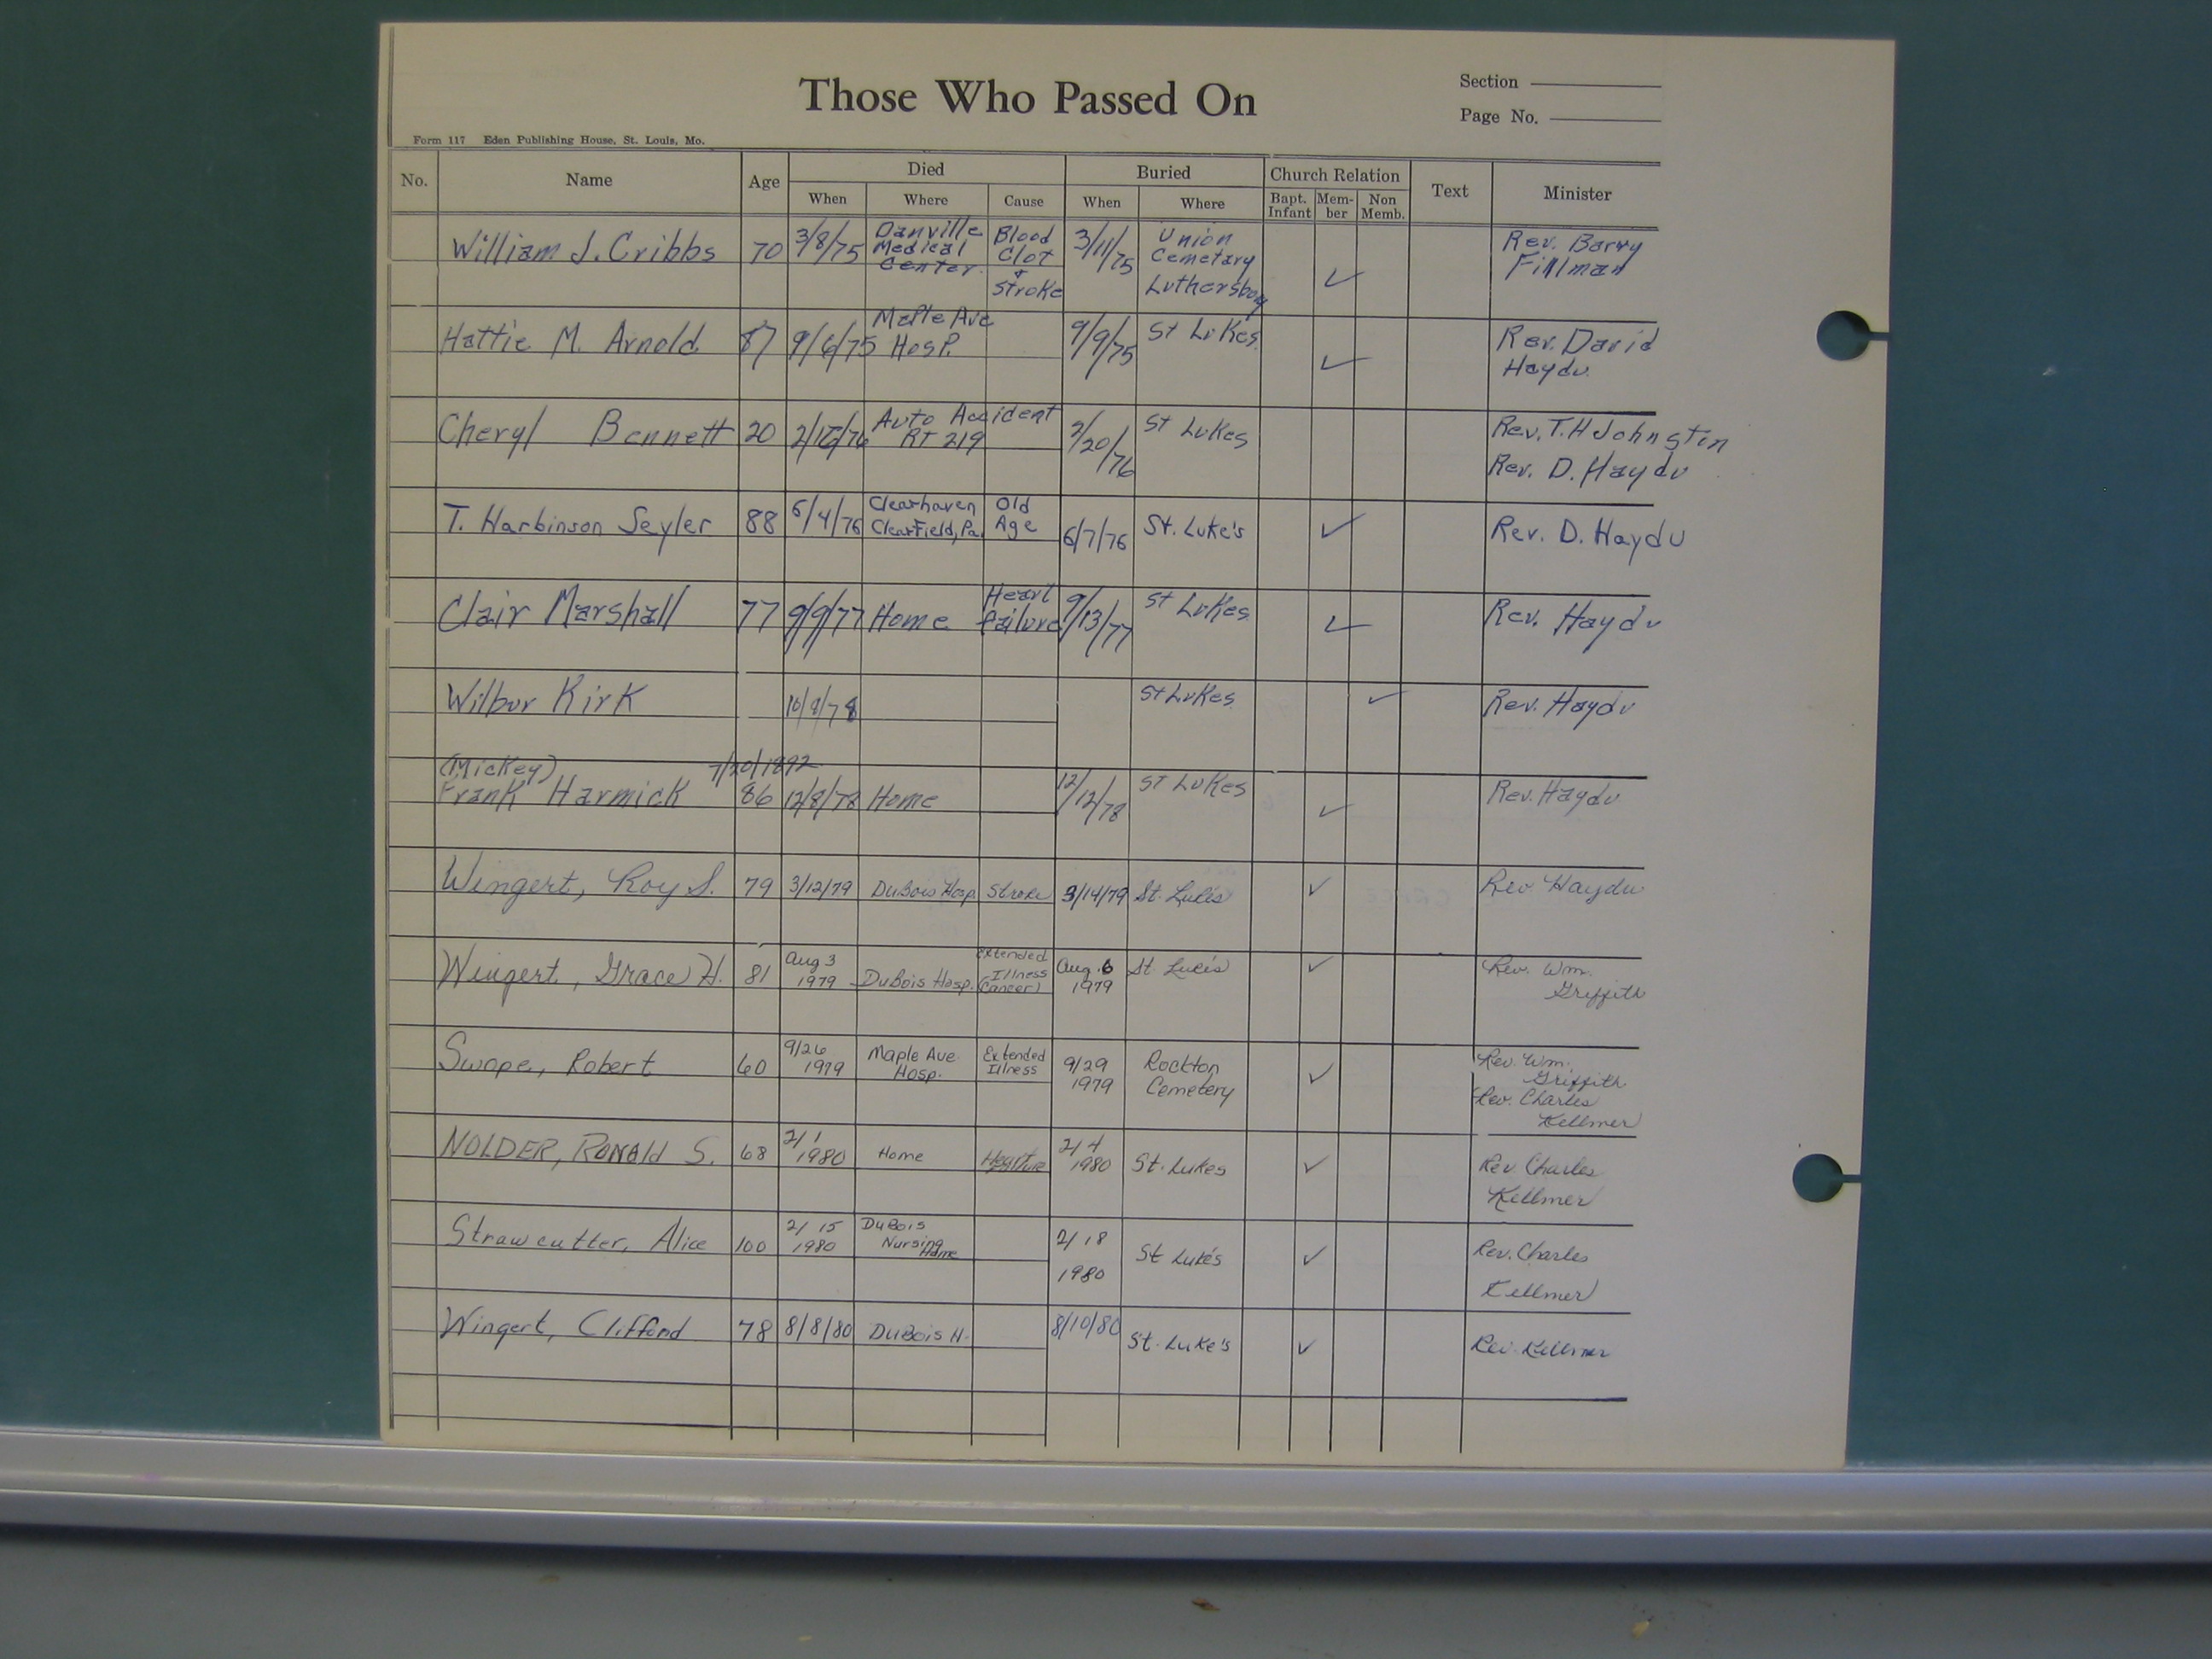 Those Who Passed On
Section
Page No.
Form 117 Eden Publishing House, St. Louis, Mo.
No. Name Age Died Buried Church Relation Text Minister
When Where Cause When Where Bapt. Infant Mem-ber Non Memb.
William J. Cribbs 70 3/8/75 Danville Medical Center. Blood Clot + Stroke 3/11/75 Union Cemetary Luthersburg ✓ Rev. Barry Fillman
Hattie M. Arnold 87 9/6/75 Maple Ave Hosp. 9/9/75 St Lukes ✓ Rev. David Haydu
Cheryl Bennett 20 Auto Accident RT 219 2/20/76 St Lukes Rev. T. H Johnstin Rev. D. Haydu
T. Harbinson Seyler 88 6/4/76 Clearhaven Clearfield, Pa. Old Age 6/7/76 St. Luke's ✓ Rev. D. Haydu
Clair Marshall 77 9/9/77 Home Heart failure 9/13/77 St Lukes ✓ Rev. Haydu
Wilbur Kirk 10/8/78 St Lukes ✓ Rev. Haydu
(Mickey) 7/20/1892
Frank Harmick 86 12/8/78 Home 12/12/78 St Lukes ✓ Rev. Haydu
Wingert, Roy S. 79 3/12/79 DuBois Hosp. Stroke 3/14/79 St. Luke's ✓ Rev Haydu
Wingert, Grace H. 81 Aug 3 1979 DuBois Hosp. Extended Illness (Cancer) Aug. 6 1979 St. Luke's ✓ Rev. Wm. Griffith
Swope, Robert 60 9/26 1979 Maple Ave. Hosp. Extended Illness 9/29 1979 Rockton Cemetery ✓ Rev. Wm. Griffith Rev. Charles Kellmer
NOLDER, RONAld S. 68 2/1 1980 Home 2/4 1980 St. Lukes ✓ Rev. Charles Kellmer
Strawcutter, Alice 100 2/15 1980 DuBois Nursing Home 2/18 1980 St Luke's ✓ Rev. Charles Kellmer
Wingert, Clifford 78 8/8/80 DuBois H. 8/10/80 St. Luke's ✓ Rev. Kellmer